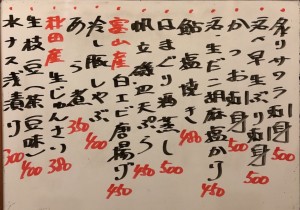 炙りサワラ刺身 500
早生ぶり刺身 500
かつお刺身
生だこ胡麻塩かけ 450
鮎塩焼き 480
はまぐり酒蒸し 500
帆立磯辺天ぷら 450
富山産 白エビ唐揚げ 450
冷し豚しゃぶ 400
あら煮 350
秋田産 生じゅんさい 380
生枝豆(茶豆味) 400
水ナス浅漬け 300